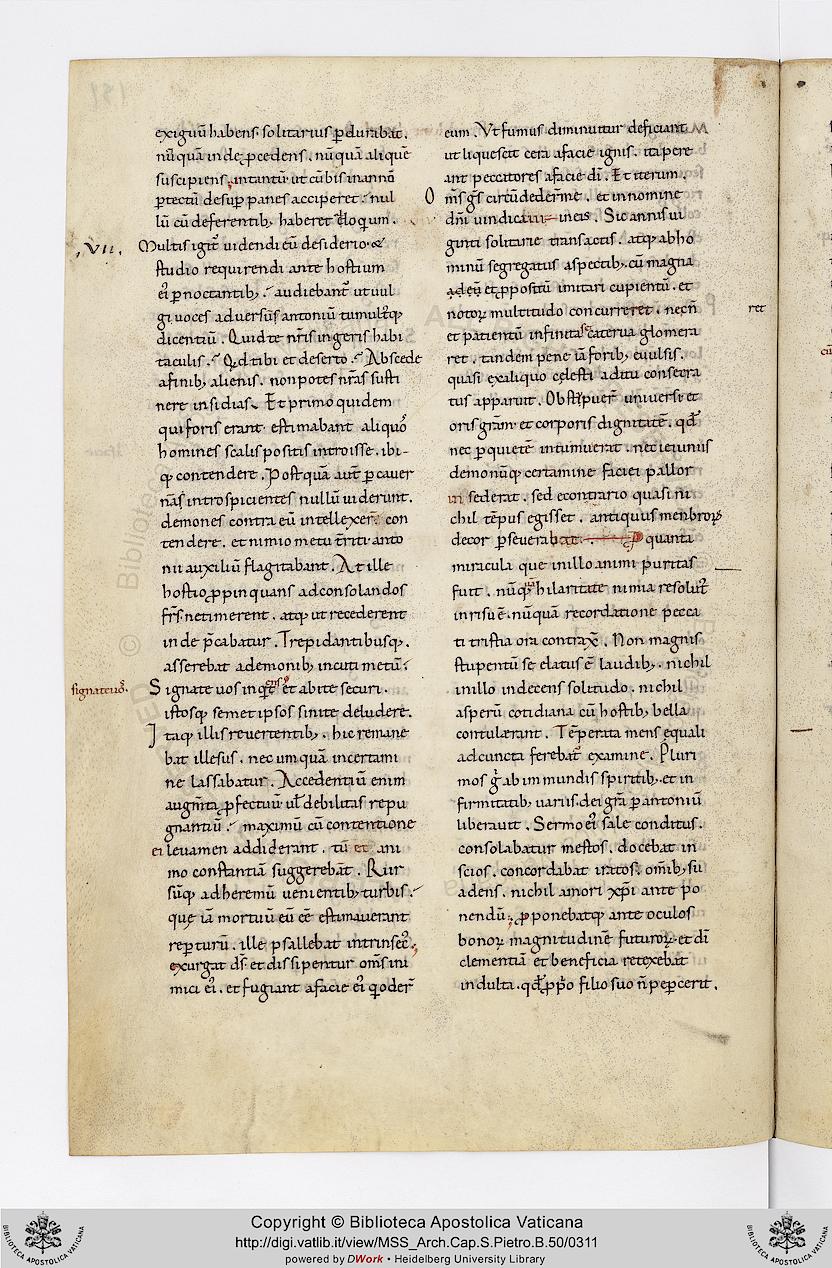 exiguū habens· solitarius ꝑdurabat.
nūquā inde ꝓcedens. nūquā aliquē
suscipiens; intantū· ut cū bis in anno
ꝑtectū desuꝑ panes acciperet· nul
lū cū deferentib; haberet eloquium.
.VII.
Multis igit̄ uidendi eū desiderio· &
studio requirendi ante hostium
ei' ꝑnoctantib;· audiebant̄ ut uul
gi uoces aduersus antoniū tumult'q;
dicentiū. Quid te nr̄is ingeris habi
taculis.· Qđ tibi et deserto.· Abscede
a finib; alienis. non potes nr̄as susti
nere insidias. Et primo quidem
qui foris erant· estimabant aliquo
homines scalis positis introisse. ibi-
q; contendere. Postquā aut̄ ꝑ cauer
nas introspicientes nullū uiderunt.
demones contra eū intellexer̄ con
tendere. et nimio metu t̄riti anto
nii auxiliū flagitabant. At ille
hostio ꝓpinquans ad consolandos
fr̄s neti merent. atq; ut recederent
inde p̄cabatur. Trepidantibusq;.
asserebat a demonib; incuti metū.·
signate uos.
Signate uos inq̄t et abite securi.
istosq; semet ipsos sinite deludere.
Itaq; illis reuertentib;. hic remane
bat illesus. nec umquā in certami
ne lassabatur. Accedentiū enim
augm̄ta ꝓfectuū ul' debilitas repu
gnantiū.· maximū cū contentione
ei leuamen addiderant. tū et ani
mo constantiā suggerebat. Rur
sūq; ad heremū uenientib; turbis.·
que iā mortuū eū eē estimauerant
reꝑturū. ille psallebat intrinsec';
exurgat ds̄· et dissipentur om̄s ini
mici ei'. et fugiant a facie ei' q oder̄
eum. Vt fumus diminuitur deficiant
ut liquescit cera a facie ignis. ita pere
ant peccatores a facie di̅. Et iterum.
Om̄s gs̄ circūdeder̄ me. et in nomine
dn̄i uindicaui in eis. Sic annis ui
ginti solitarie transactis. atq; ab ho
minū segregatus aspectib;. cū magna
ad eū et ꝓpositū imitari cupientū. et
notoꝝ multitudo concurreret. necn̄
ret
et patientū infinita caterua glomera
ret. tandem pene iā forib; euulsis.
quasi ex aliquo celesti aditu consecra
tus apparuit. Obstipuer̄ uniuersi et
oris gr̄am et corporis dignitatē. qđ
nec ꝑ quietē intumuerat. nec ieiuniis
demonūq; certamine faciei pallor
insederat. sed econtrario quasi ni
chil tēpus egisset. antiquus menbroꝝ
decor ꝑseuerabat. P quanta
miracula que in illo animi puritas
fuit. nūq̄ hilaritate nimia resolut̄
in risū ē. nūquā recordatione pecca
ti tristia ora contrax̄. Non magnis
stupentū se elatus ē laudib;. nichil
in illo indecens solitudo. nichil
asperū cotidiana cū hostib; bella
contulerant. Tēperata mens equali
ad cuncta ferebat̄ examine. Pluri
mos ġ ab immundis spiritib; et in
firmitatib; uariis. dei gr̄a ꝑ antoniū
liberauit. Sermo ei' sale conditus.
consolabatur mestos. docebat in
scios. concordabat iratos. om̄ib; su
adens. nichil amori xp̄i ante po
nendū; ꝓponebatq; ante oculos
bonoꝝ magnitudinē futuroꝝ· et di̅
clementiā et beneficia retexebat
indulta. qđ ꝓp̄o filio suo n̄ peꝑcerit.
Copyright © Biblioteca Apostolica Vaticana
http://digi.vatlib.it/view/MSS_Arch.Cap.S.Pietro.B.50/0311
powered by DWork • Heidelberg University Library
BIBLIOTECA APOSTOLICA VATICANA
BIBLIOTECA APOSTOLICA VATICANA